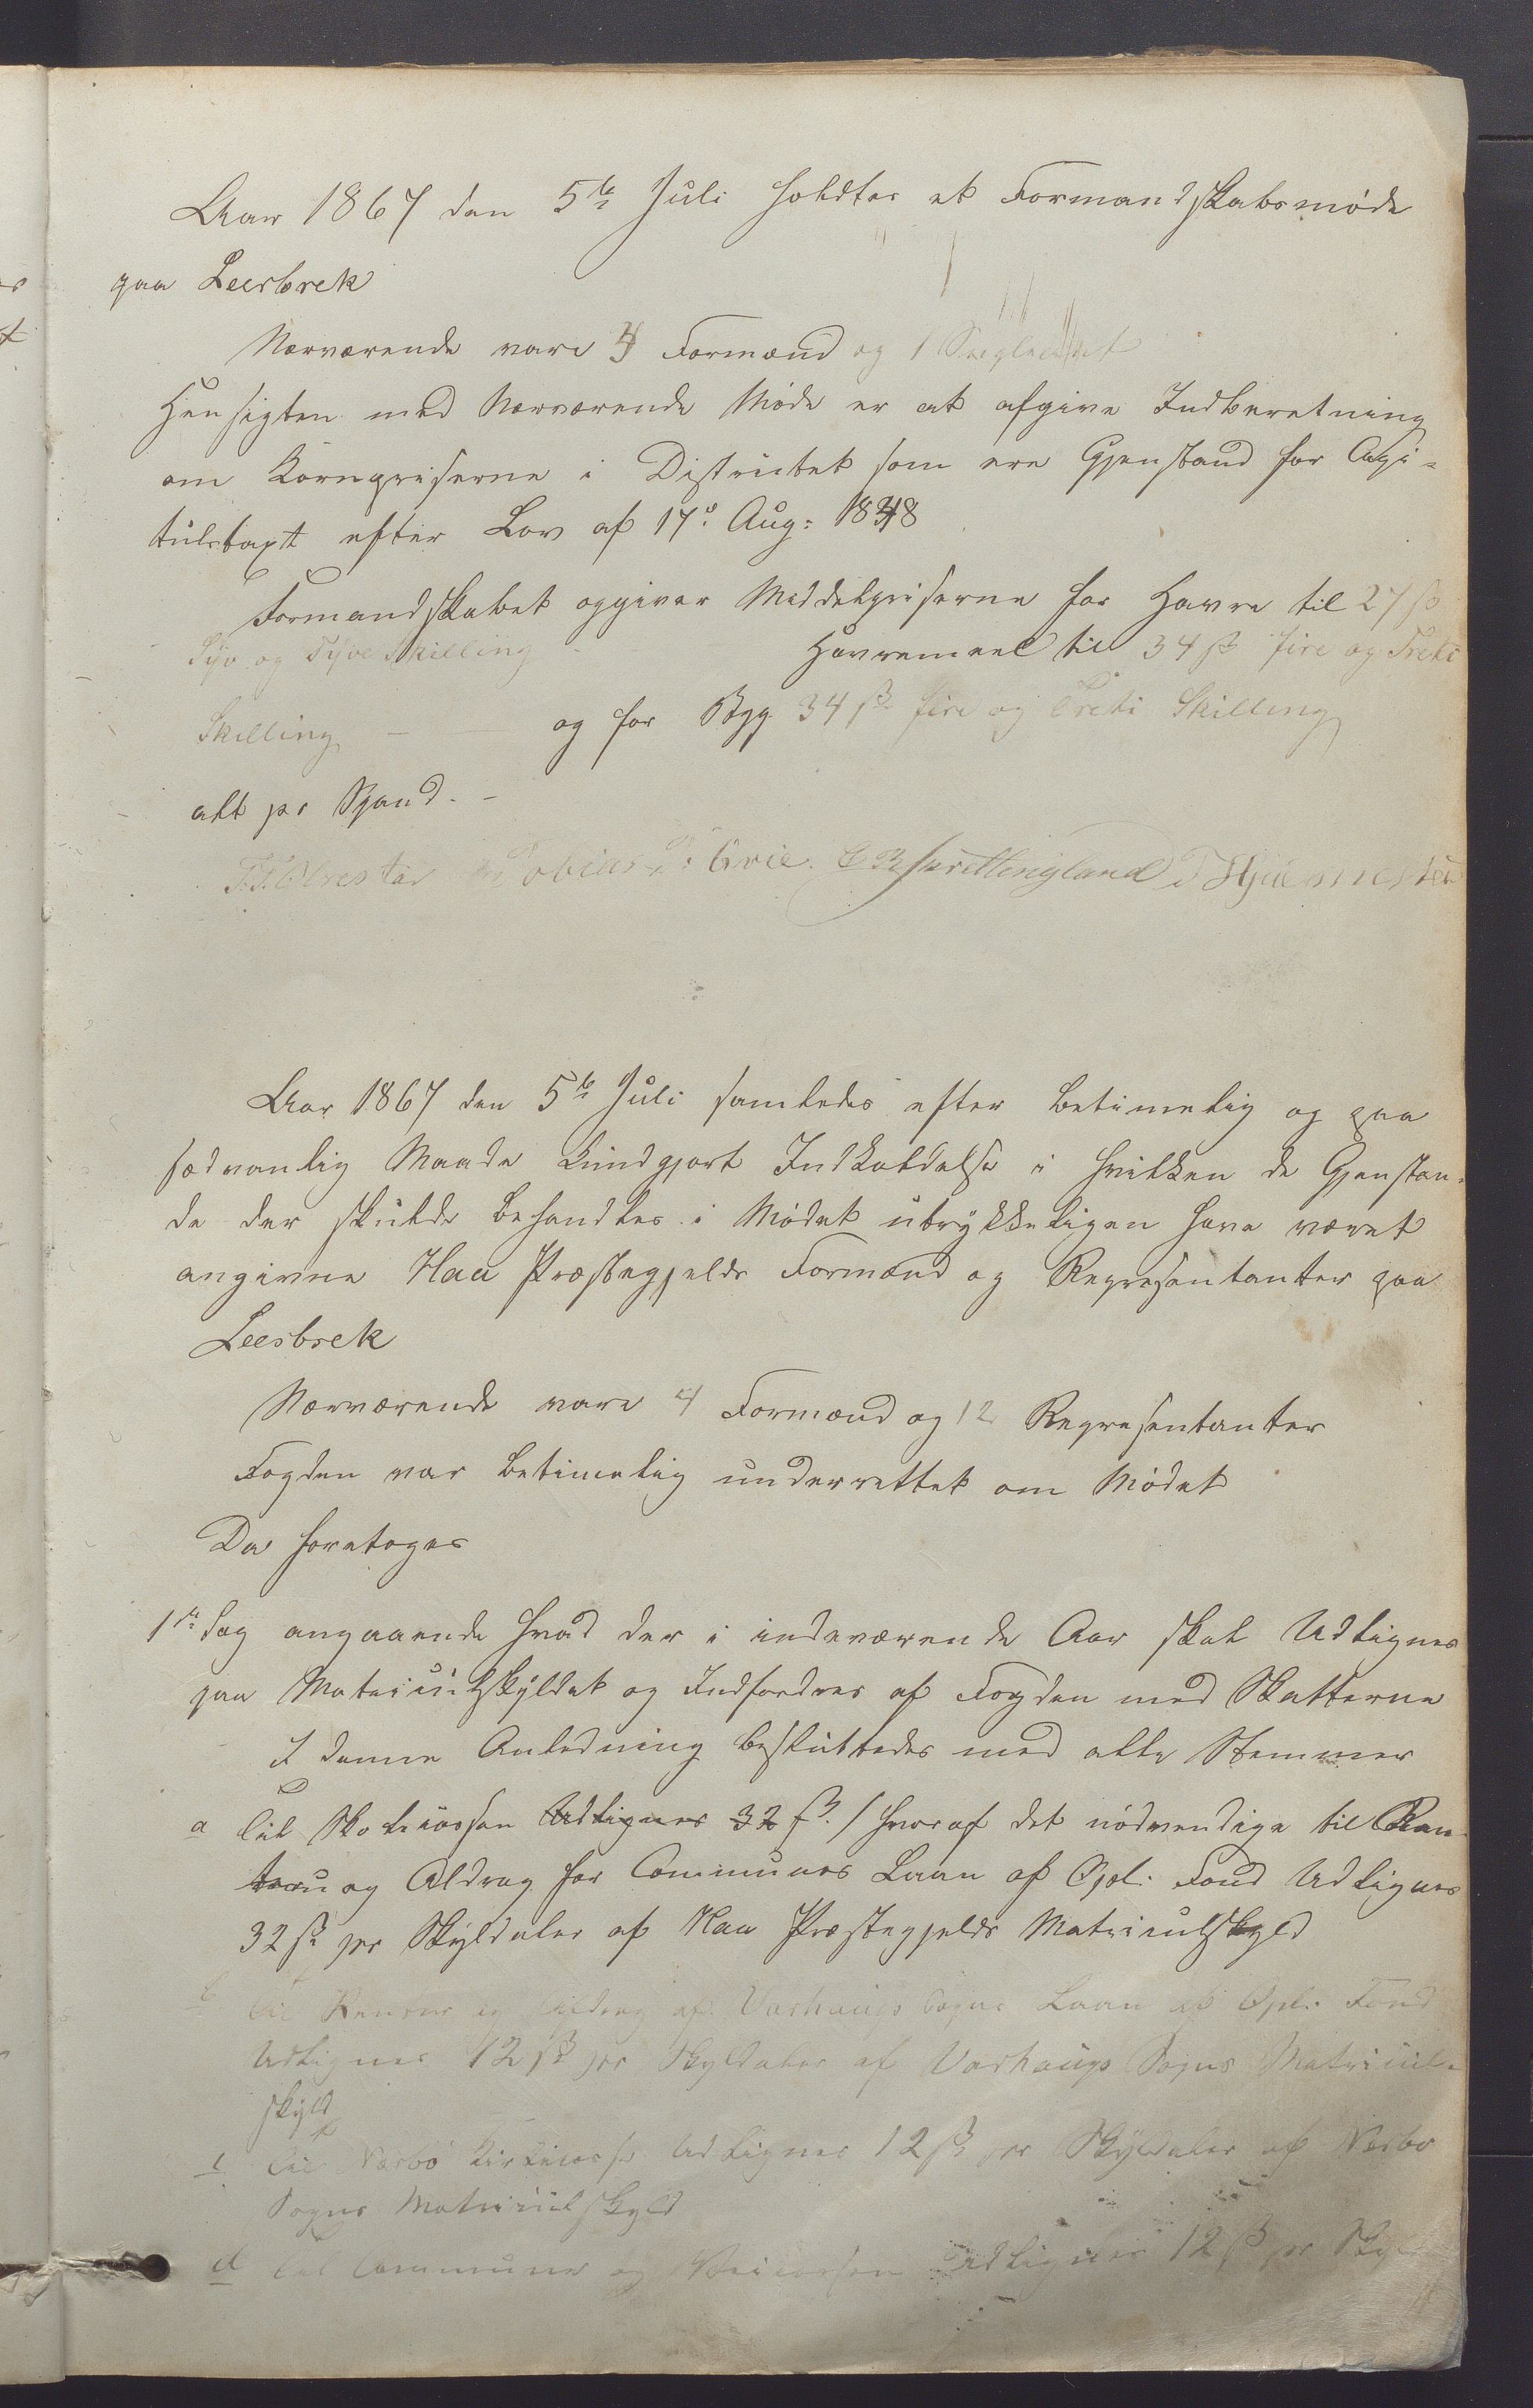 Aar 1867 den 5te Juli holdtes et Formandskabsmøde
paa Leesbrek
Nærværende vare 4 Formænd og 1
Hensigten med Nærværende Møde er at afgive Indberetning
om Kornpriserne i Districtet som ere Gjenstand for Capi-
tulstaxt efter Lov af 17de Aug: 1848
Formandskabet opgiver Middelpriserne for Havre til 27 ß
Syv og Tyve Skilling Havremeel til 34 ß fire og Treti
Skilling - og for Byg 34 ß fire og Treti Skilling
alt pr Spand. -
Aar 1867 den 5te Juli samledes efter betimelig og paa
sædvanlig Maade kundgjort Indkaldelse i hvilken de Gjenstan-
de der skulde behandles i Mødet utrykkeligen have været
angivne Haa Præstegjelds Formænd og Repræsentanter paa
Leesbrek
Nærværende vare 4 Formænd og 12 Repræsentanter
Fogden var betimelig underrettet om Mødet
Da foretoges
1ste Sag angaaende hvad der i indeværende Aar skal Udlignes
paa Matriculskyldet og Indfordres af Fogden med Skatterne
I denne Anledning besluttedes med alle Stemmer
a Til Skolecassen Udlignes 32 ß. / hvoraf det nødvendige til Ren-
ter og Afdrag for Communes Laan af Opl: Fond Udlignes
32 ß pr Skyldaler af Haa Præstegjelds Matriculskyld
b Til Renter og Afdrag af Varhaugs Sogns Laan af Opl: Fond
Udlignes 12 ß pr Skyldaler af Varhaugs Sogns Matricul-
skyld
c Til Nærbø Kirkecasse Udlignes 12 ß pr Skyldaler af Nærbø
Sogns Matriculskyld
d Til Commune og Veicassen Udlignes 12 ß pr